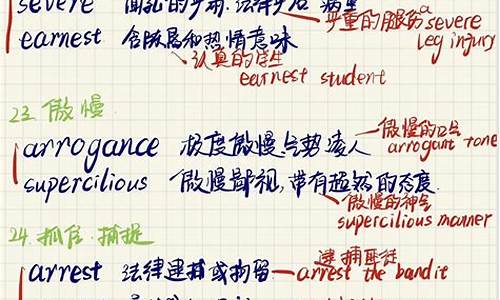 severe
严重的腿伤 a severe leg injury
earnest 含胀局和热情意味
认真的学生
earnest student
23 傲慢
arrogance 极度傲慢气势凌人
傲慢的口气
arrogant tone
supercilious 傲慢鄙视,带有超然的态度
傲慢的神气
supercilious manner
24. 抓住·捕捉
arrest 法律逮捕或拘留
逮捕匪徒
arrest the bandit